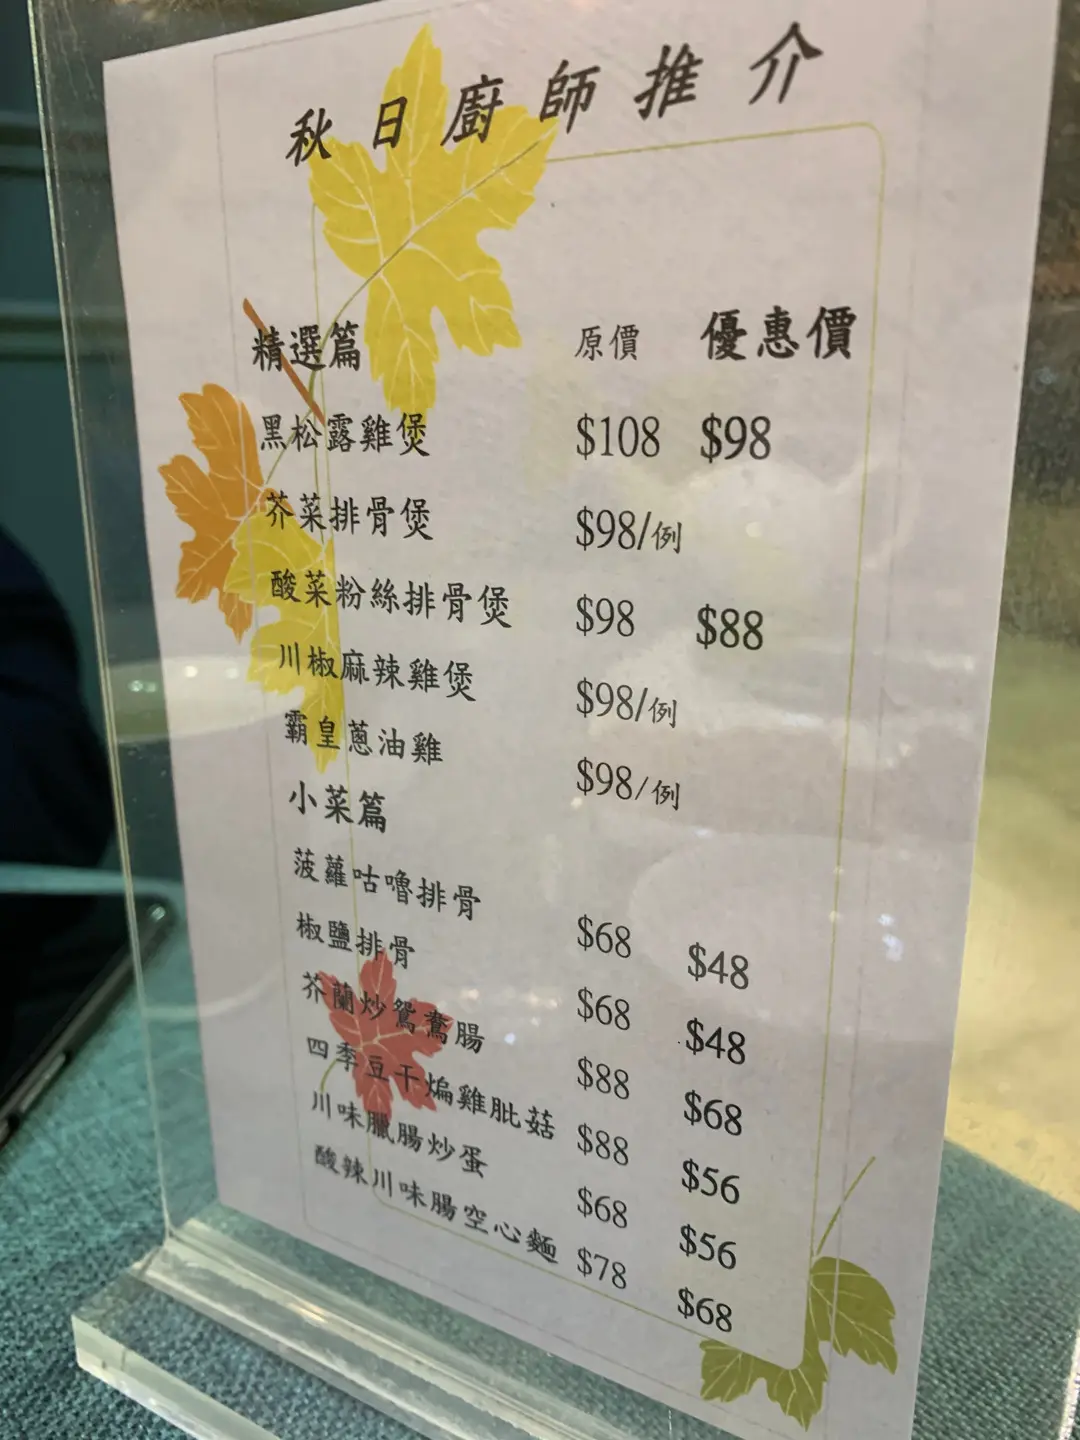 秋日廚師推介
精選篇 原價 優惠價
黑松露雞煲 $108 $98
芥菜排骨煲 $98/例
酸菜粉絲排骨煲 $98 $88
川椒麻辣雞煲 $98/例
霸皇蔥油雞 $98/例
小菜篇
菠蘿咕嚕排骨 $68 $48
椒鹽排骨 $68 $48
芥蘭炒鴛鴦腸 $88 $68
四季豆干煸雞肶菇 $88 $56
川味臘腸炒蛋 $68 $56
酸辣川味腸空心麵 $78 $68